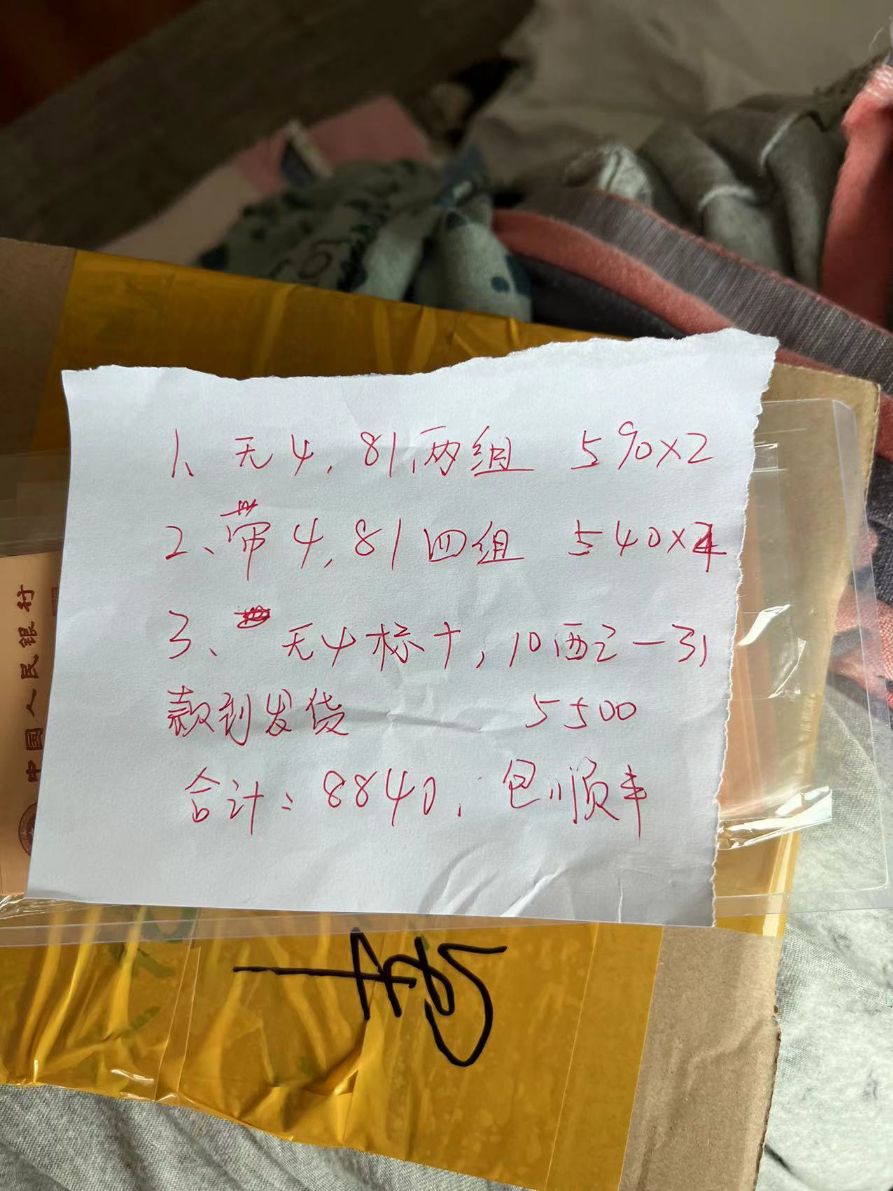 1、无4,81,两组 590×2
2、带4,81四组 540×4
3、无4标十,10西已一31
款到发货 5500
合计:8840,包顺丰
中国人民银行